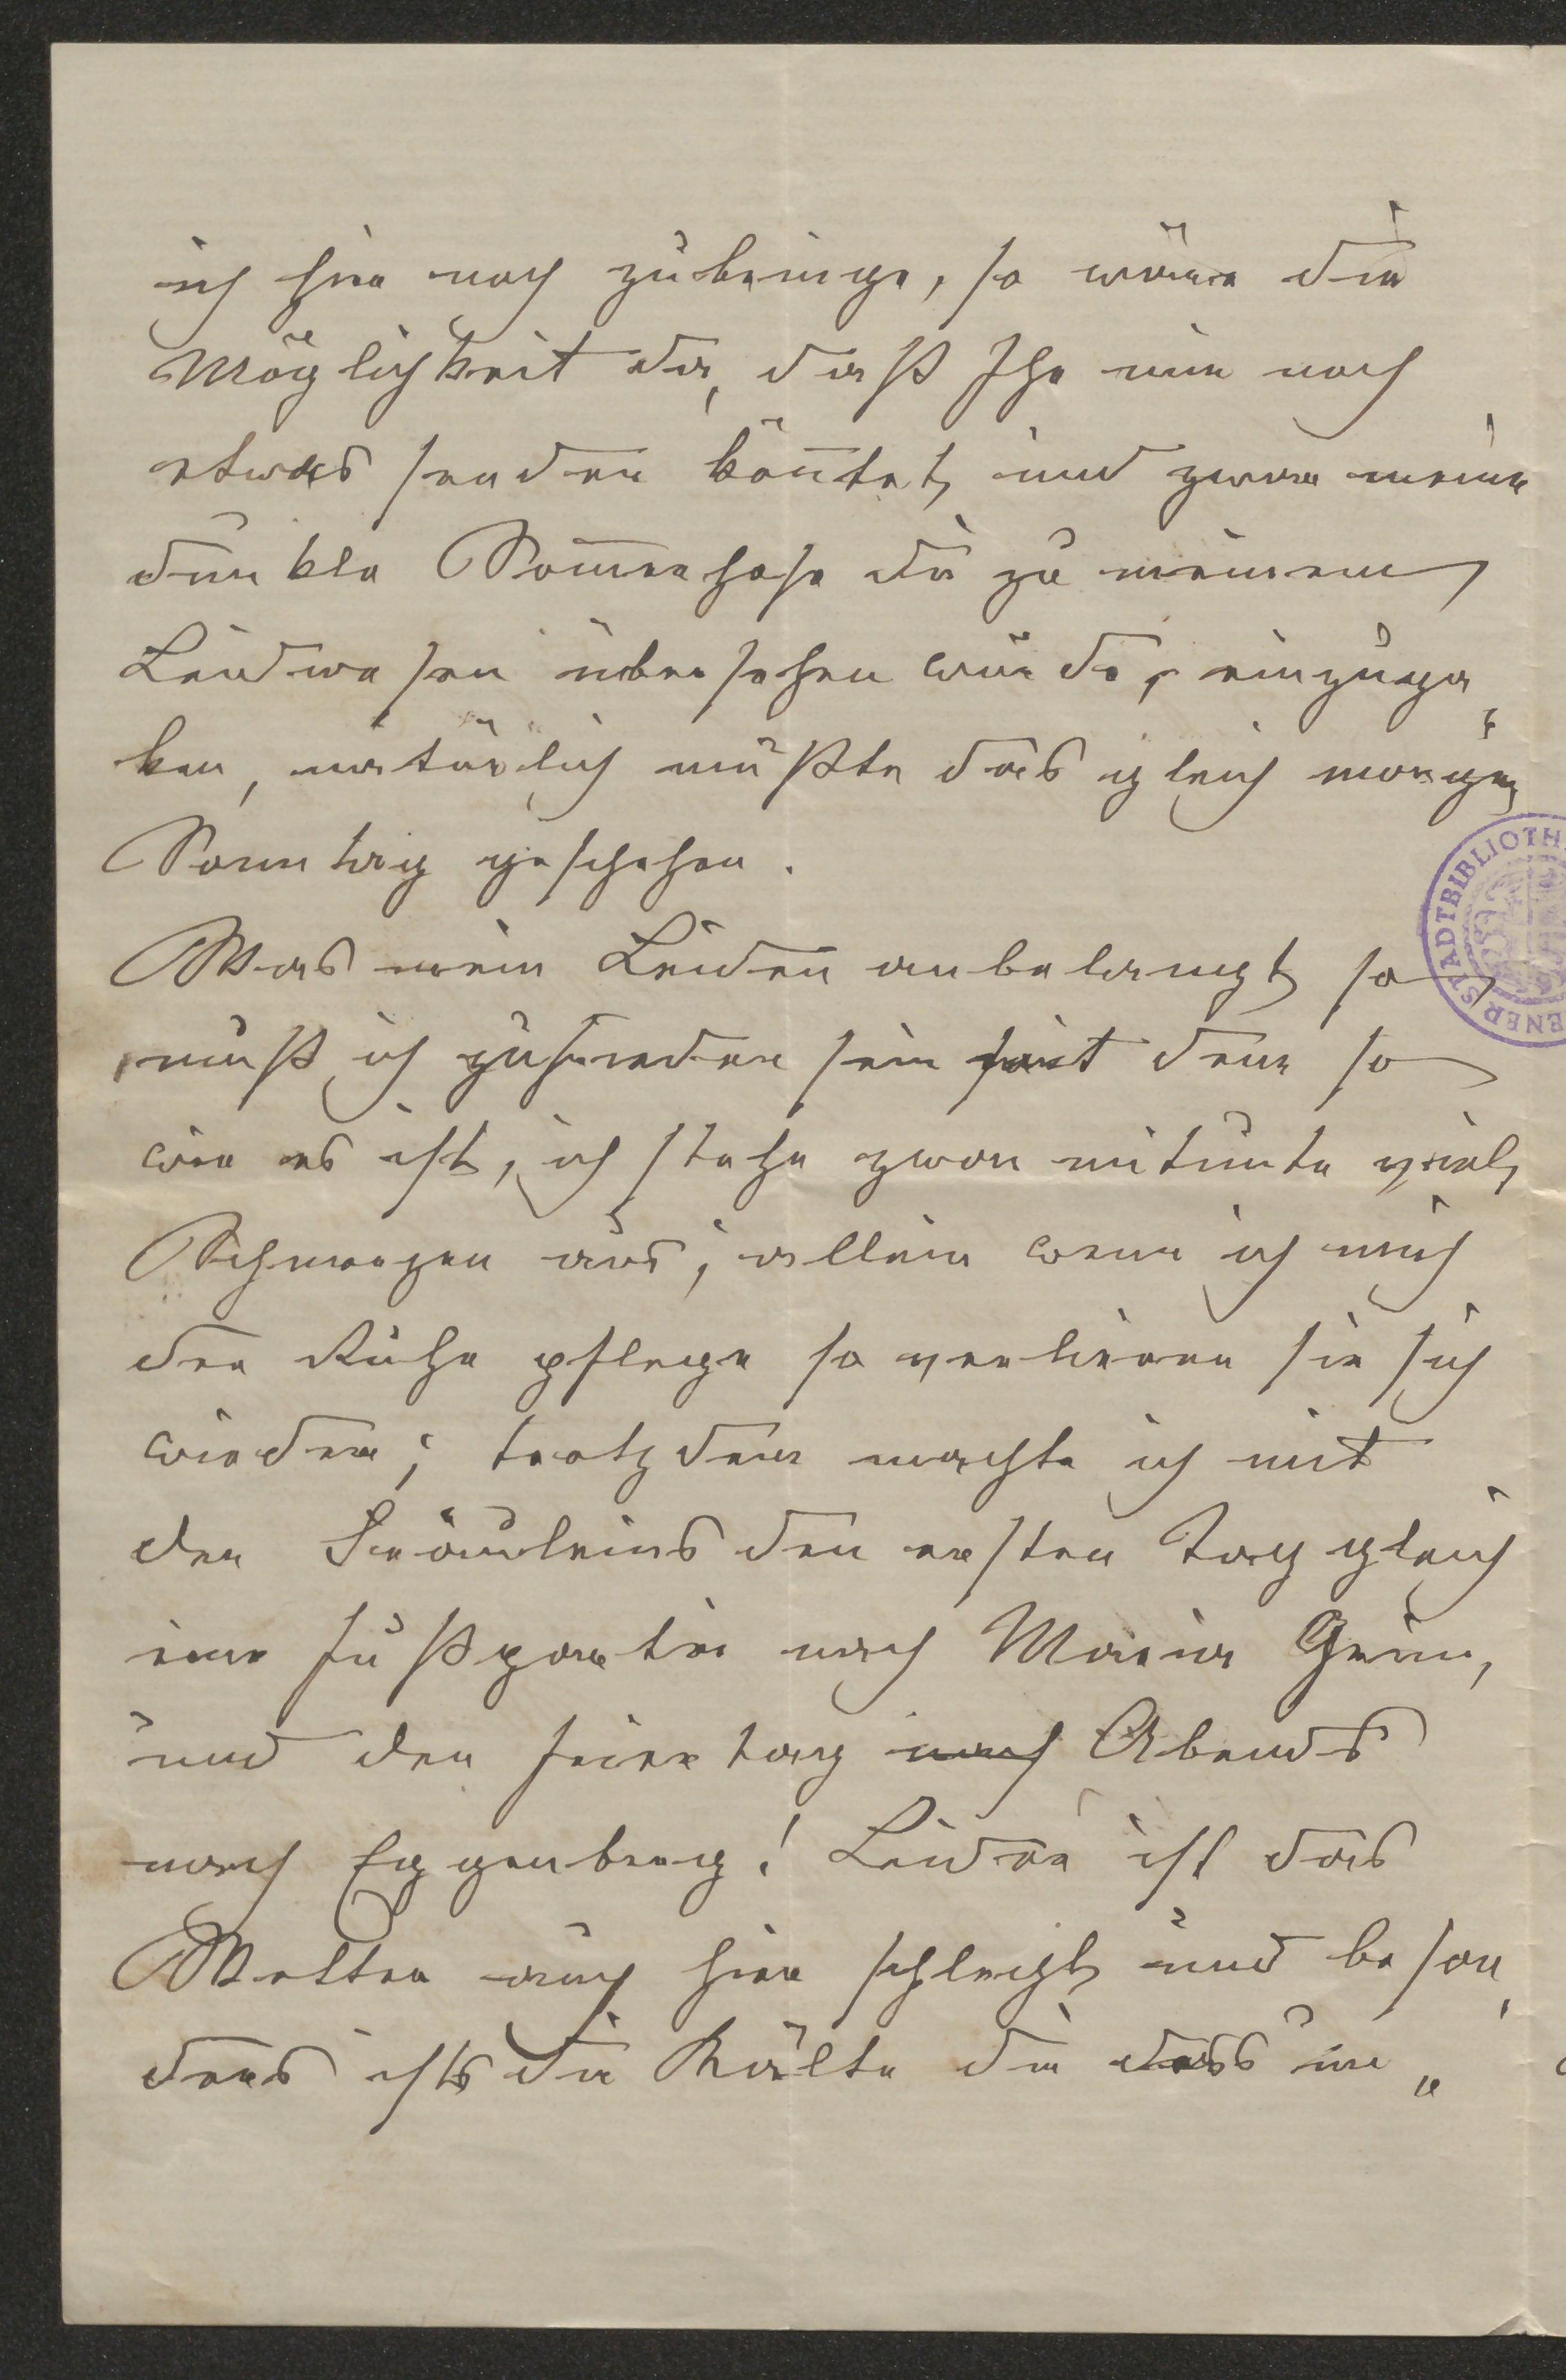 ich hier noch zubringe, so wäre die
Möglichkeit da, daß Ihr mir noch
etwas senden kön̄tet, und zwar meine
dunkle Som̄erhose die zu meinem
Leidwesen übersehen wurde, einzupa¬
ken, natürlich müßte das gleich morgen
Sonntag geschehen.
Was mein Leiden anbelangt, so
muß ich zufrieden sein mit dem so
wie es ist, ich stehe zwar mitunter viel
Schmerzen aus, allein wenn ich mich
der Ruhe pflege so verlieren sie sich
wieder; trotzdem machte ich mit
den Fräuleins den ersten Tag gleich
eine Fußpartie nach Maria Grün,
und den Feiertag nach Abends
nach Eggenberg! Leider ist das
Wetter auch hier schlecht, und beson¬
ders ists die Kälte die das im¬
STADTBIBLIOTH
ENER